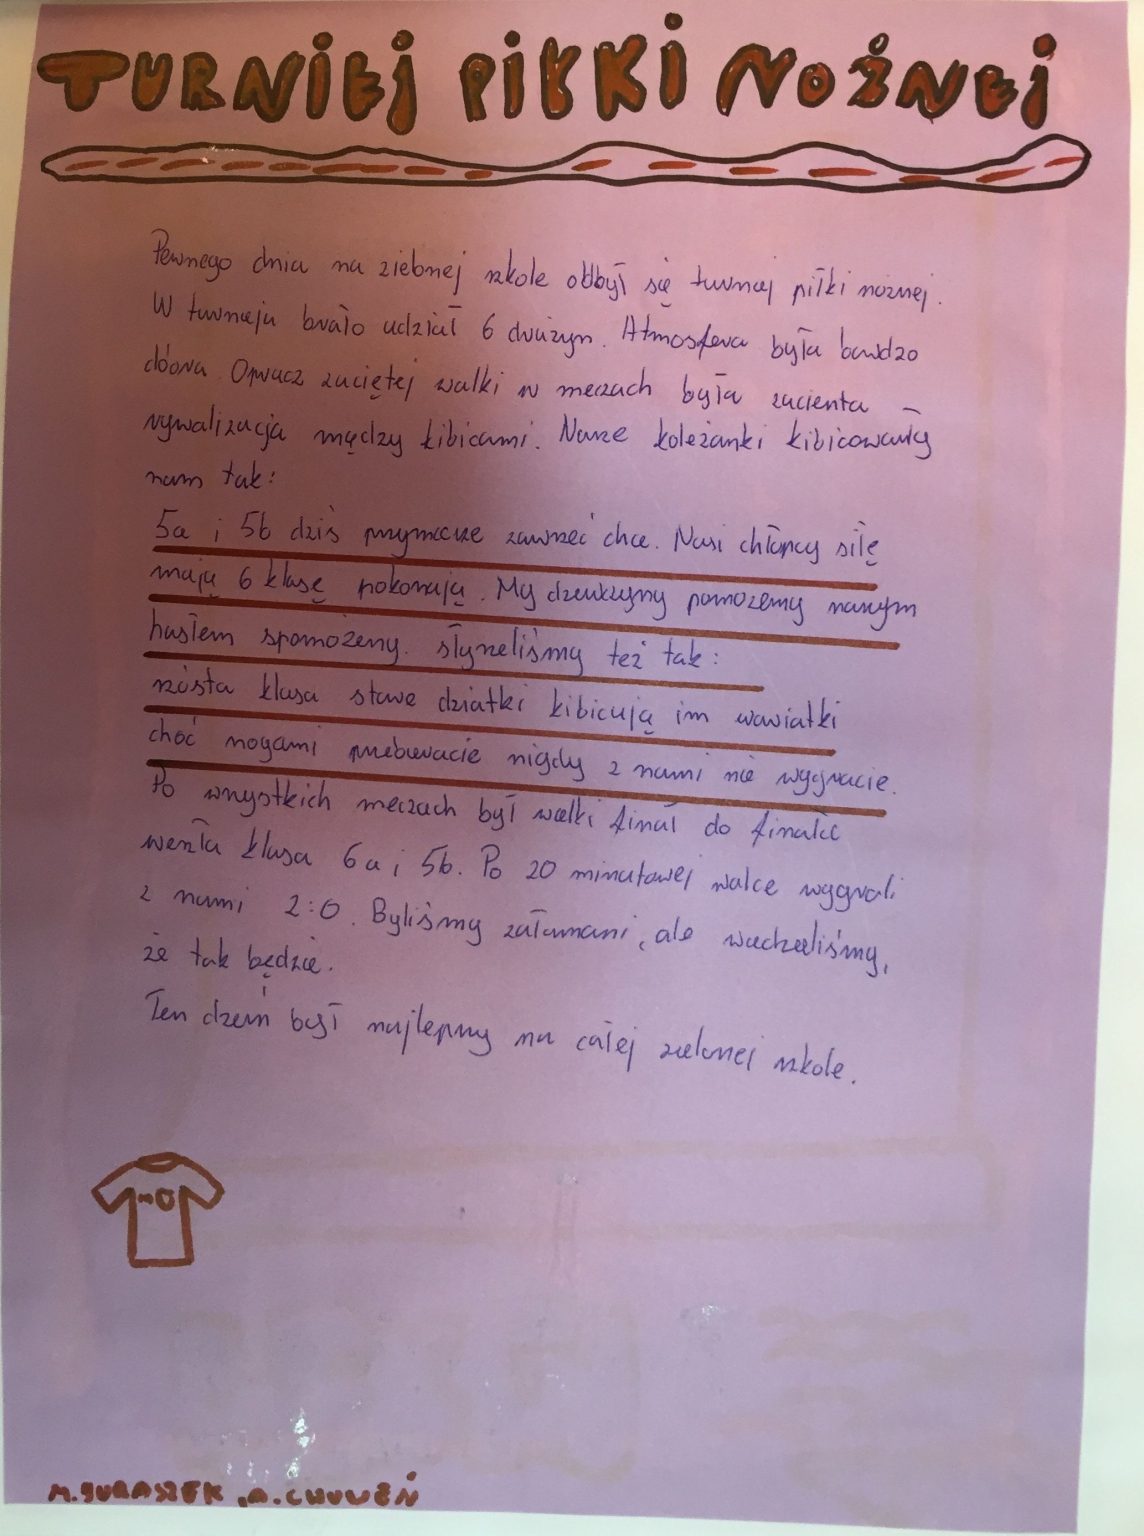 TURNIEJ PIŁKI NOŻNEJ
Pewnego dnia na zielonej szkole odbył się turniej piłki nożnej.
W turnieju brało udział 6 drużyn. Atmosfera była bardzo
dobra. Oprucz zaciętej walki w meczach była zacienta
rywalizacja między kibicami. Nasze koleżanki kibicowały
nam tak:
5a i 5b dziś przymieże zawrzeć chce. Nasi chłopcy siłę
mają 6 klasę pokonają. My dzewczyny pomożemy naszym
hasłem spomożemy. słyszeliśmy też tak:
szósta klasa stare dziatki kibicują im wawiatki
choć nogami przebieracie nigdy z nami nie wygracie.
Po wszystkich meczach był wielki finał do finału
weszła klasa 6a i 5b. Po 20 minutowej walce wygrali
z nami 2:0. Byliśmy załamani, ale wiedzieliśmy,
że tak będzie.
Ten dzień był najlepszy na całej zielonej szkole.
M.JURASZEK, A.